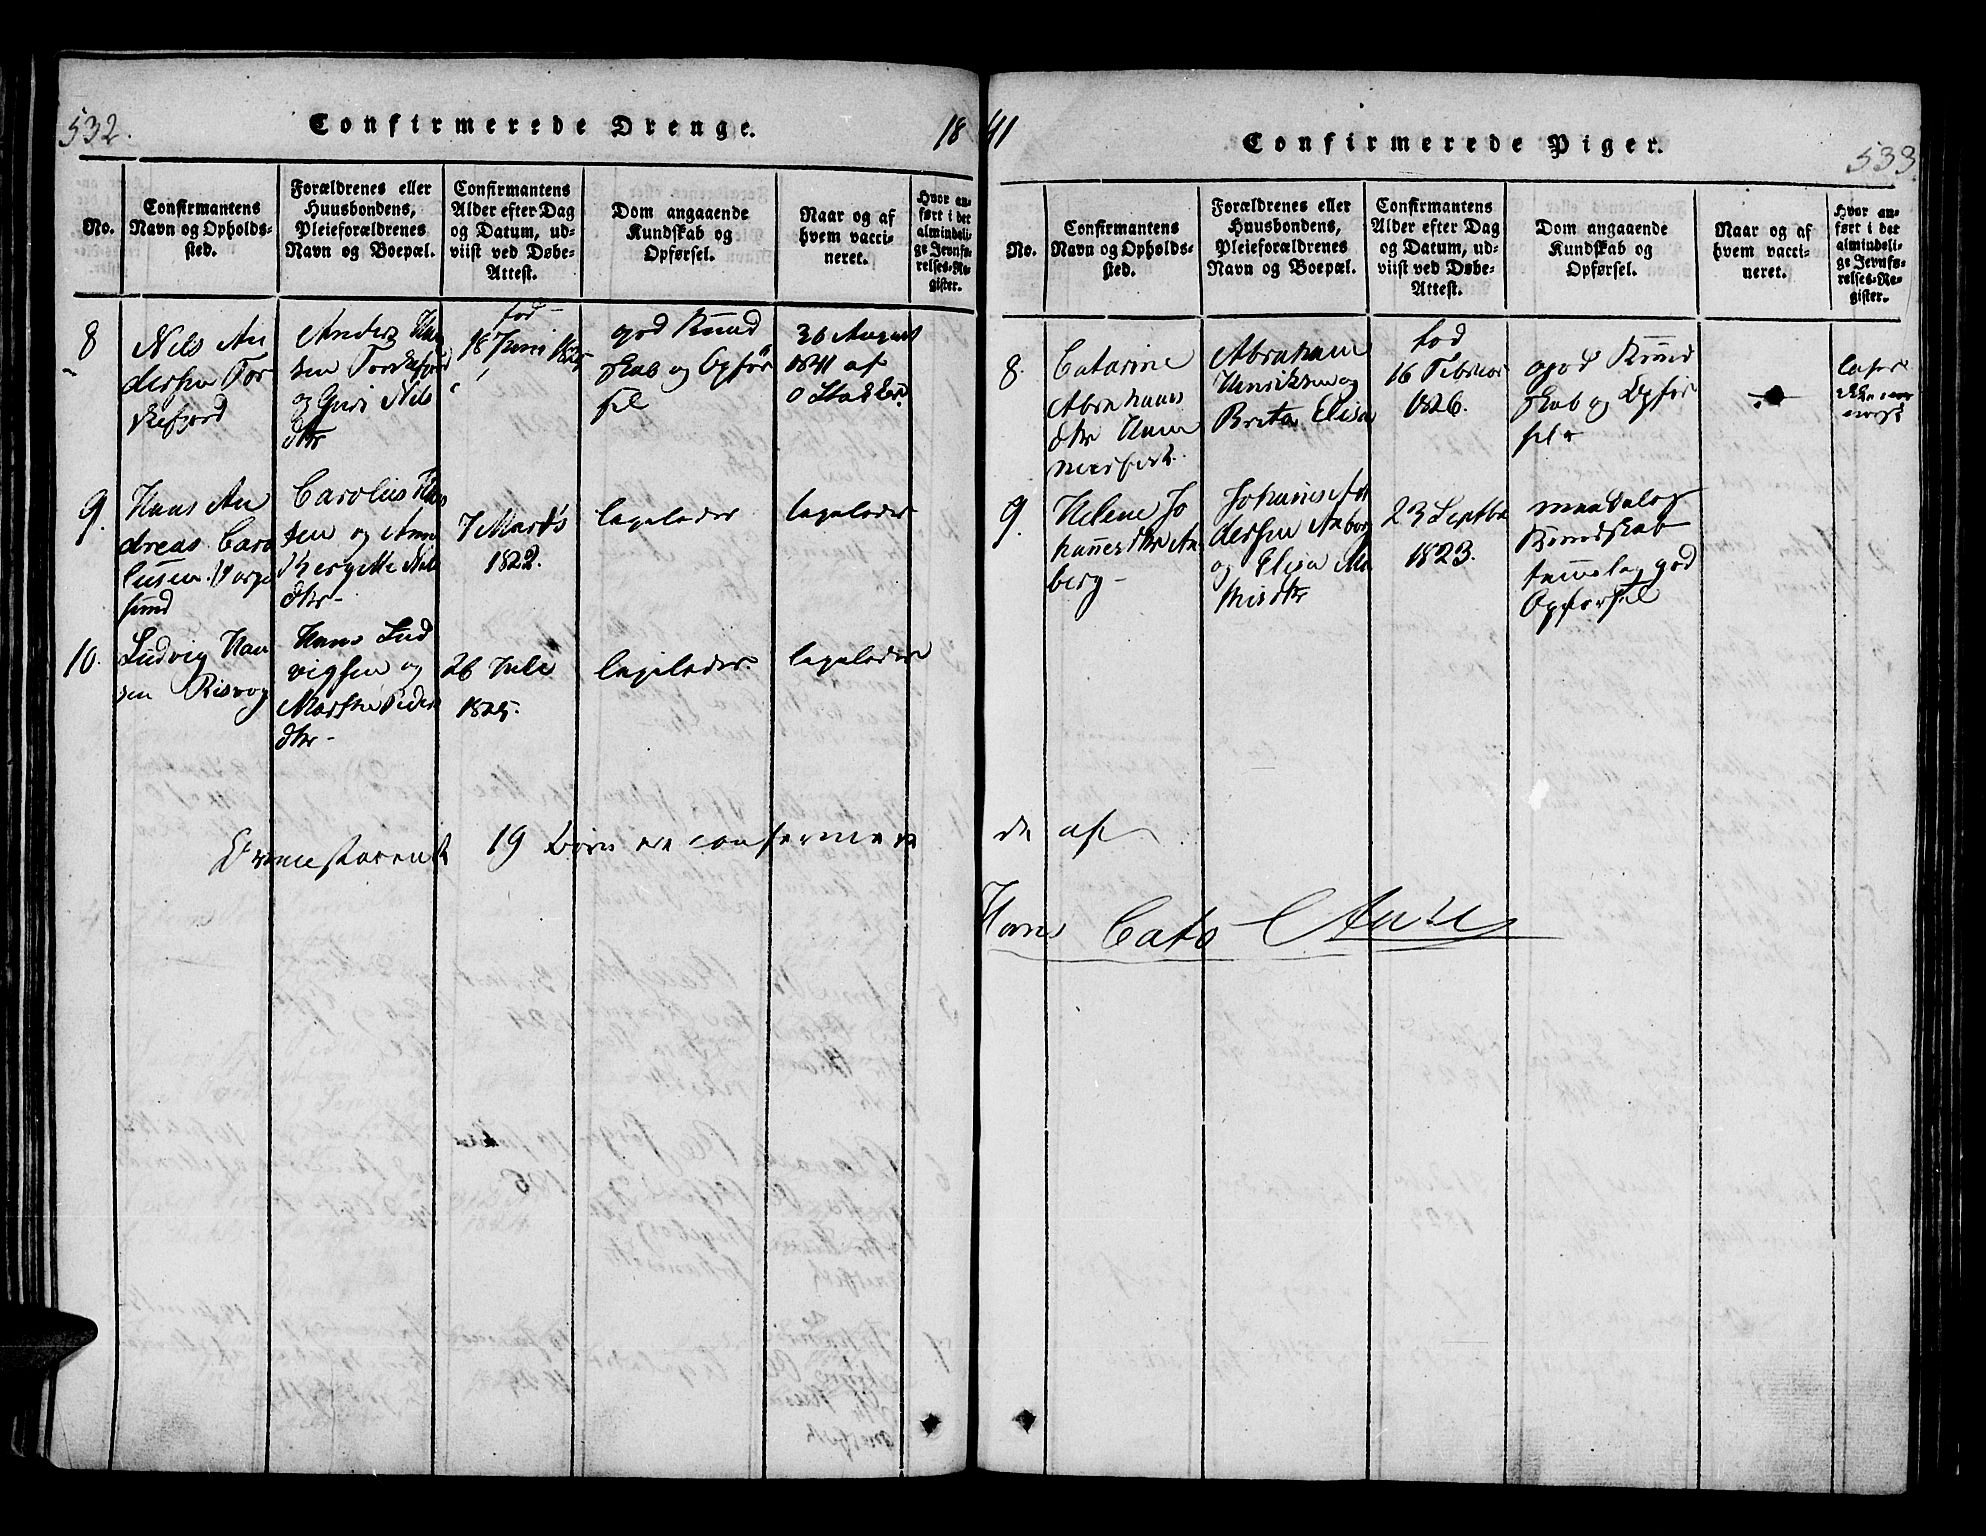 532.
Confirmerede Drenge.
18
No.
Confirmantens
Navn og Opholds-
sted.
Forældrenes eller
Huusbondens,
Pleieforældrenes
Navn og Boepæl.
Confirmantens
Alder efter Dag
og Datum, ud-
viist ved Døbe-
Attest.
Dom angaaende
Kundskab og
Opførsel.
Naar og af
hvem vacci-
neret.
Hvor an-
ført i det
almindeli-
ge Jevnfø-
relses-Re-
gister.
8
Nils An
dersen Tor
skefjord
Anders Han
sen Torskefjord
og Guri Nils
dtr
fød
18 Juni 1825
god Kund
skab og Opfør
sel
26 August
1841 af
9.
Hans An
dreas Caro
liusen
sund
Carolius Han
sen og Anne
Bergitte Nils
dtr
7 Marts
1822.
10.
Ludvig Han
sen Risvog
Hans Lud
vigsen og
Marthe Peders
dtr
26 Jule
1825.
19 Børn ere confirmere
41
Confirmerede Piger.
533.
No.
Confirmantens
Navn og Opholds-
sted.
Forældrenes eller
Huusbondens,
Pleieforældrenes
Navn og Boepæl.
Confirmantens
Alder efter Dag
og Datum, ud-
viist ved Døbe-
Attest.
Dom angaaende
Kundskab og
Opførsel.
Naar og af
hvem vacci-
neret.
Hvor an-
ført i det
almindeli-
ge Jevnfø-
relses-Re-
gister.
8.
Catarine
Abrahams
dtr Ham
merfest.
Abraham
Henriksen og
Brita Elisa
fød
16 Februar
1826.
god Kund
skab og Opfør
sel
9.
Helene Jo
hannesdtr An
berg
Johannes An
dersen Anberg
og Elisa Ma
thisdtr
23 Septbr
1823.
maadelig
Kundskab
temmelig god
Opførsel
de af
Hans Cato Aall